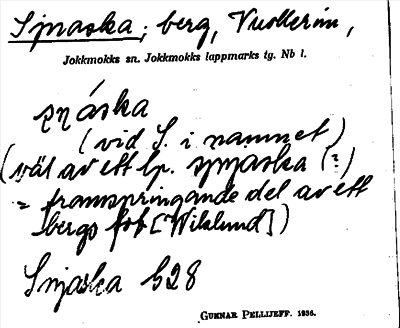 Snjaska; berg, Vuollerim,
Jokkmokks sn. Jokkmokks lappmarks tg. Nb l.
snáska
(vid S. i namnet)
(väl av ett lp. snjaska (?)
= framspringande del av ett
bergs fot [Wiklund])
Snjaska b28
GUNNAR PELLIJEFF. 1936.